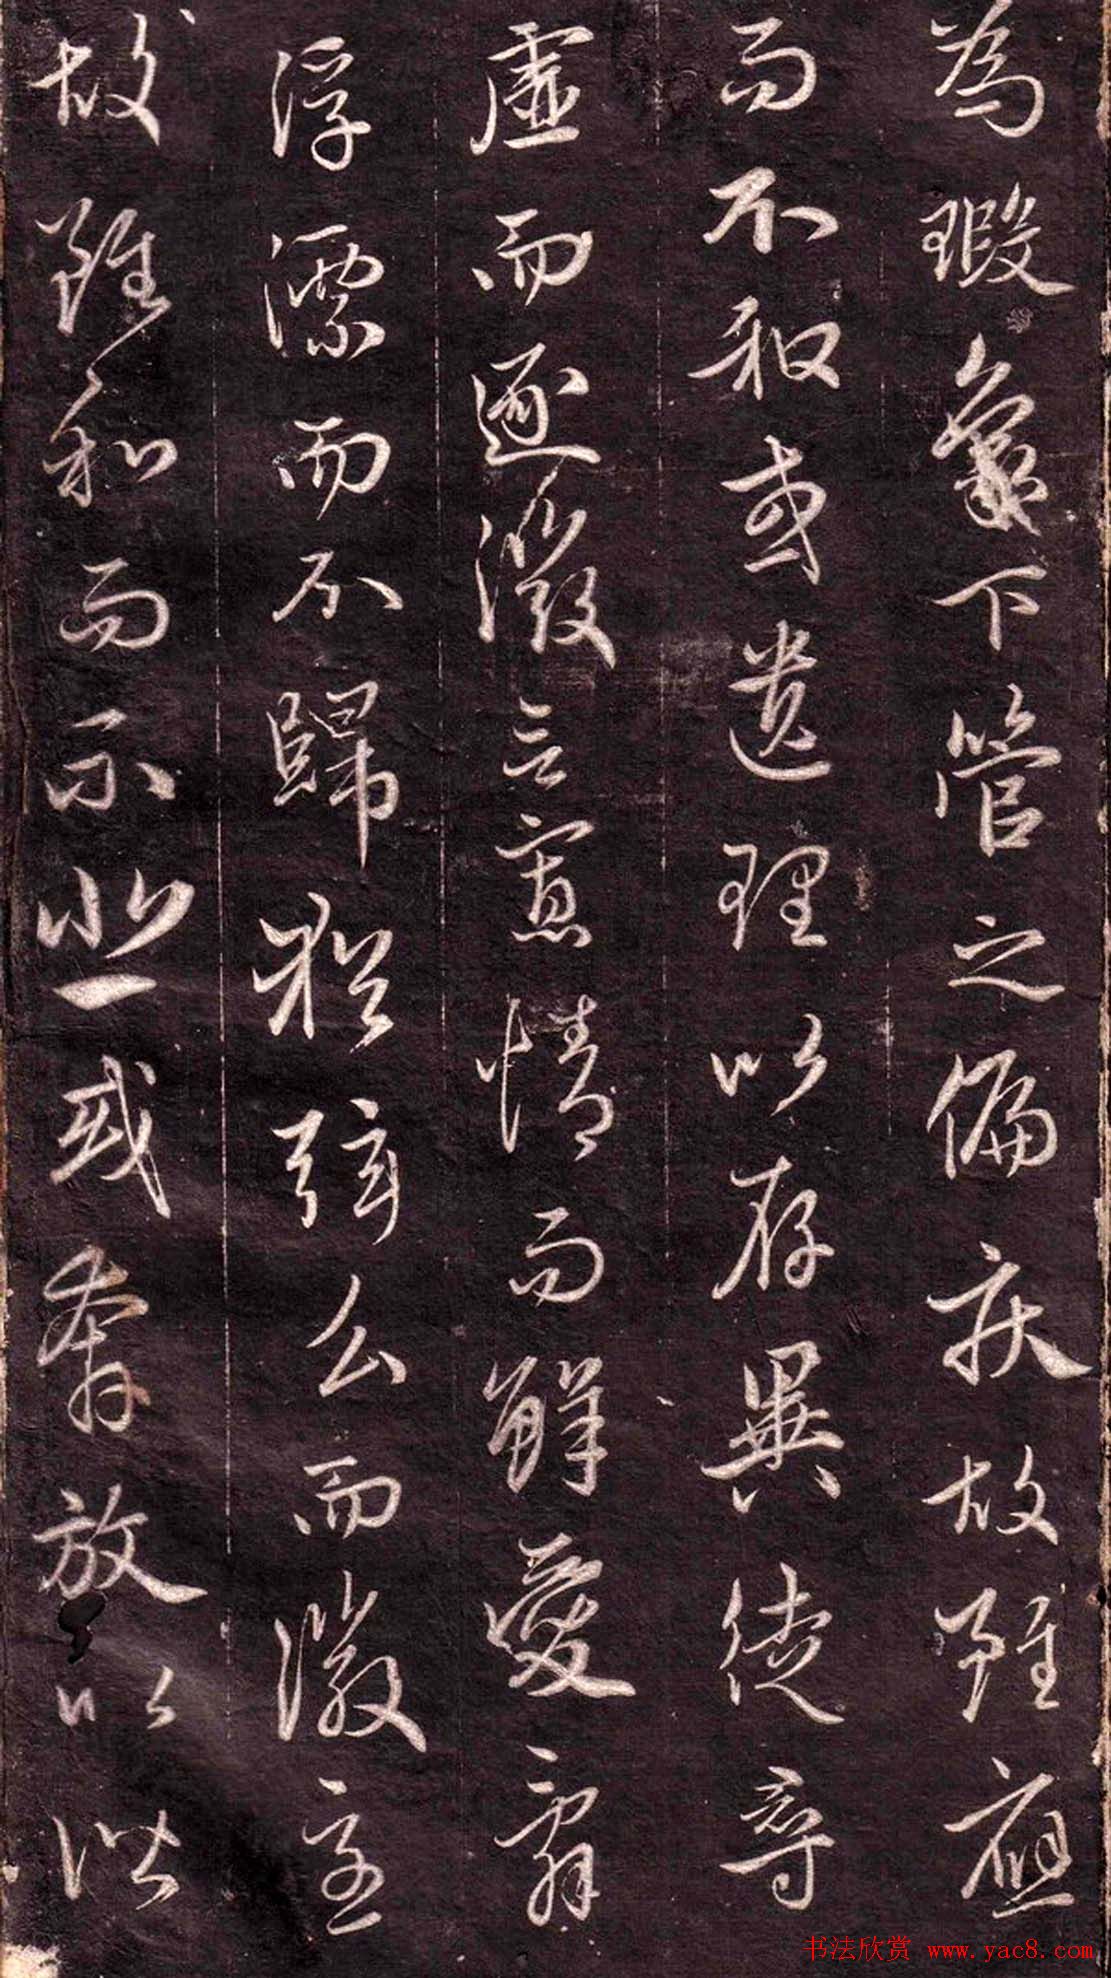 為瑕象下管之偏疾故雖應
而不和或遺理以存異徒尋
虛而逐微言寡情而鮮愛辭
浮漂而不歸猶弦么而徽急
故雖和而不悲或奔放以諧
书法欣赏 www.yac8.com